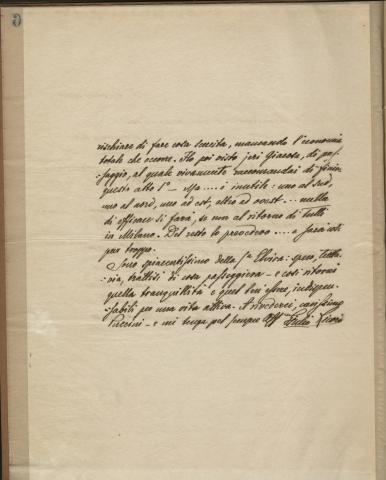 6
rischiare di fare cosa scucita, mancando l'economia
totale che occorre. Ho poi visto jeri Giacosa, di pas-
saggio, al quale vivamente raccomandai di finire
questo atto 1º - Ma .... è inutile: uno al sud,
uno al nord, uno ad est, altro ad ovest... nulla
di efficace si farà, se non al ritorno di tutti
in Milano. Del resto lo prevedevo .... e sarà così
pur troppo.
Sono spiacentissimo della Sra Elvira: spero, tutta-
via, trattisi di cosa passeggiera - e così ritorni
quella tranquillità e quel ben essere, indispen-
sabili per una vita attiva. A rivederci, carissimo
Puccini - e mi tenga pel sempre Aff Giulio Ricordi